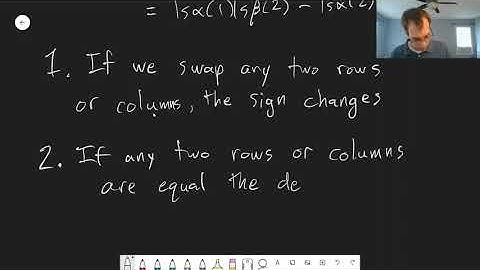 = 1sα(1)1sβ(2) − 1sα(2)
1. If we swap any two rows
or columns, the sign changes
2. If any two rows or columns
are equal the de